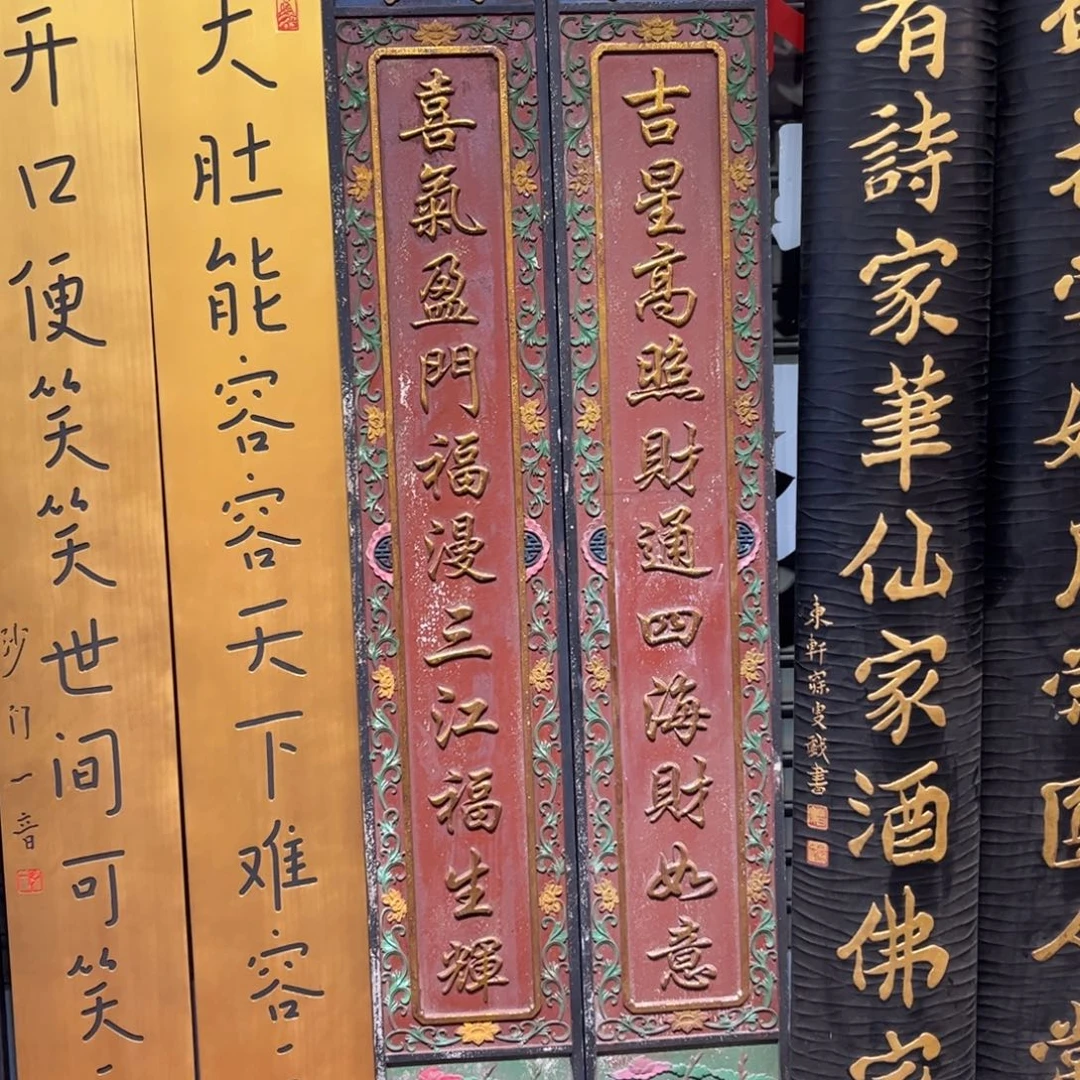 有詩家筆仙家酒佛家
東軒寐叟戲書
吉星高照財通四海財如意
喜氣盈門福漫三江福生輝
大肚能容容天下难容
开口便笑笑世间可笑
沙门一音